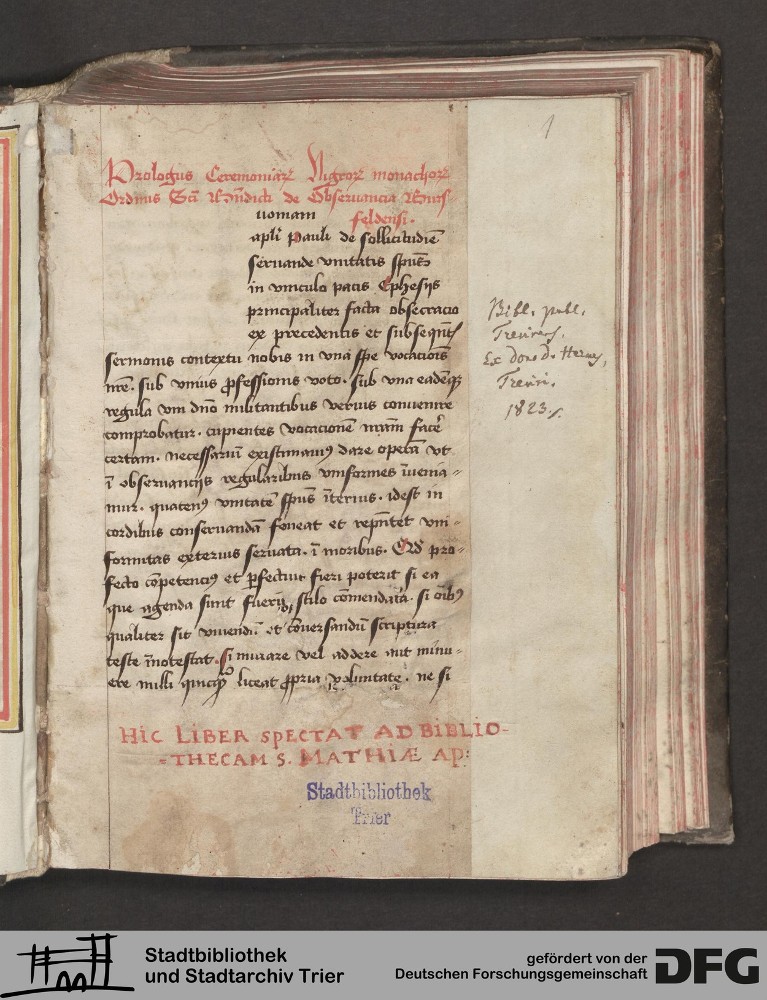 1
Prologus Ceremoniaꝝ Nigroꝝ monachoꝝ
Ordinis Scī Bn̄dicti de Obseruancia Burs
feldensi.
uoniam
apl̄i Pauli de sollicitudīe
seruande vnitatis sp̄us
in vinculo pacis Ephesijs
principaliter facta obsecracio
ex precedentis et subseqn̄t
sermonis contextu nobis in vna spe vocacionis
nr̄e. sub vnius ꝓfessionis voto. sub vna eademqꝫ
regula vni dn̄o militantibus verius conuenire
comprobatur. cupientes vocacionē nr̄am facē
certam. necessariū existimauimꝰ dare operā vt
ī obseruancijs regularibus vniformes īuenia-
mur. quatenꝰ vnitatē sp̄us īterius. idest in
cordibus conseruandā foueat et repn̄tet vni-
formitas exterius seruata. ī moribus. Qd̄ pro-
fecto cōpetenciꝰ et ꝑfectiuꝰ fieri poterit si ea
que agenda sunt fuerīt stilo cōmendata. si oībꝰ
qualiter sit viuendū et cōuersandū scriptura
teste īnotescat. Si mutare vel addere aut minu-
ere nulli liceat ꝓpria voluntate. ne si
HIC LIBER SPECTAT AD BIBLIO-
-THECAM S. MATHIÆ AP:
Bibl. publ.
Trevirens.
Ex dono D. Hermes,
Treviri.
1823.
Stadtbibliothek
Trier
Stadtbibliothek
und Stadtarchiv Trier
gefördert von der
Deutschen Forschungsgemeinschaft
DFG